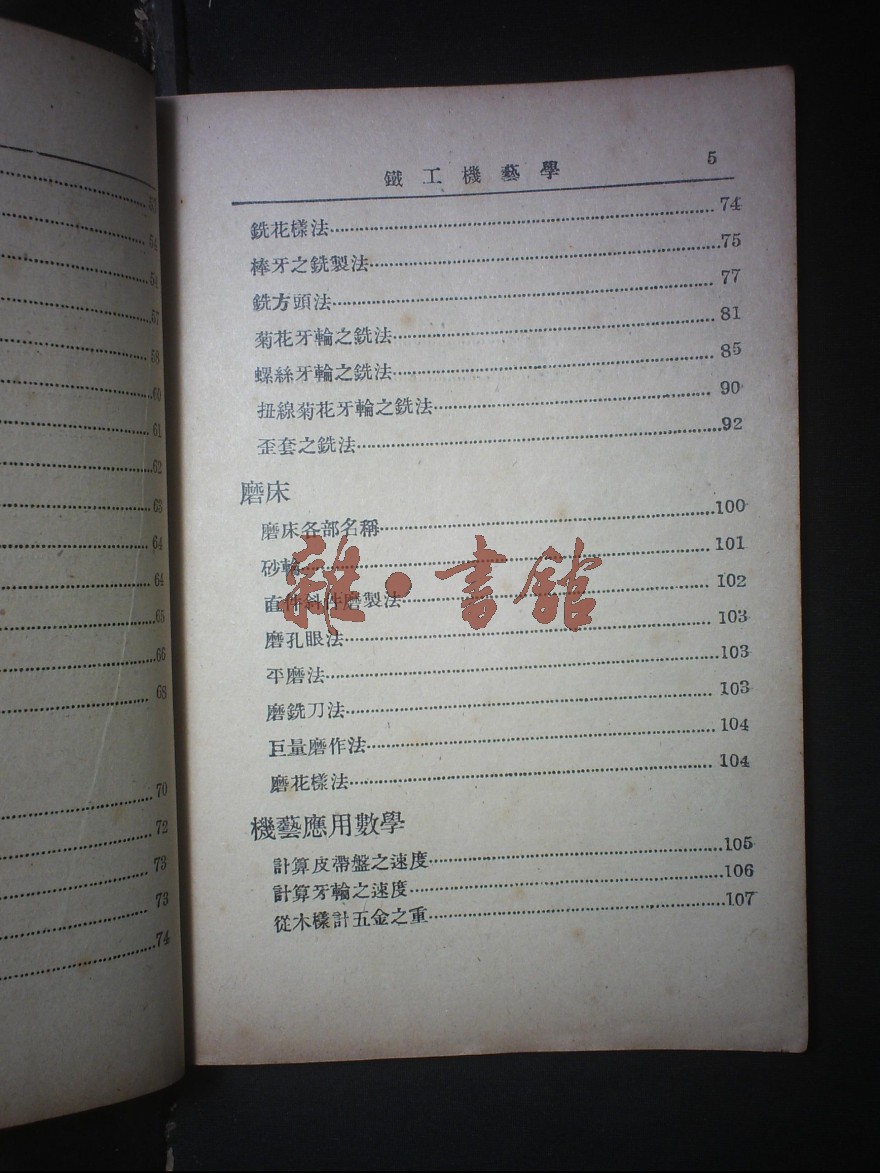 52
54
54
57
58
60
61
62
63
64
64
65
66
68
70
72
73
73
74
鐵工機藝學 5
銑花樣法 74
棒牙之銑製法 75
銑方頭法 77
菊花牙輪之銑法 81
螺絲牙輪之銑法 85
扭線菊花牙輪之銑法 90
歪套之銑法 92
磨床
磨床各部名稱 100
砂輪 101
直件斜件磨製法 102
磨孔眼法 103
平磨法 103
磨銑刀法 103
巨量磨作法 104
磨花樣法 104
機藝應用數學
計算皮帶盤之速度 105
計算牙輪之速度 106
從木樣計五金之重 107
雜·書館